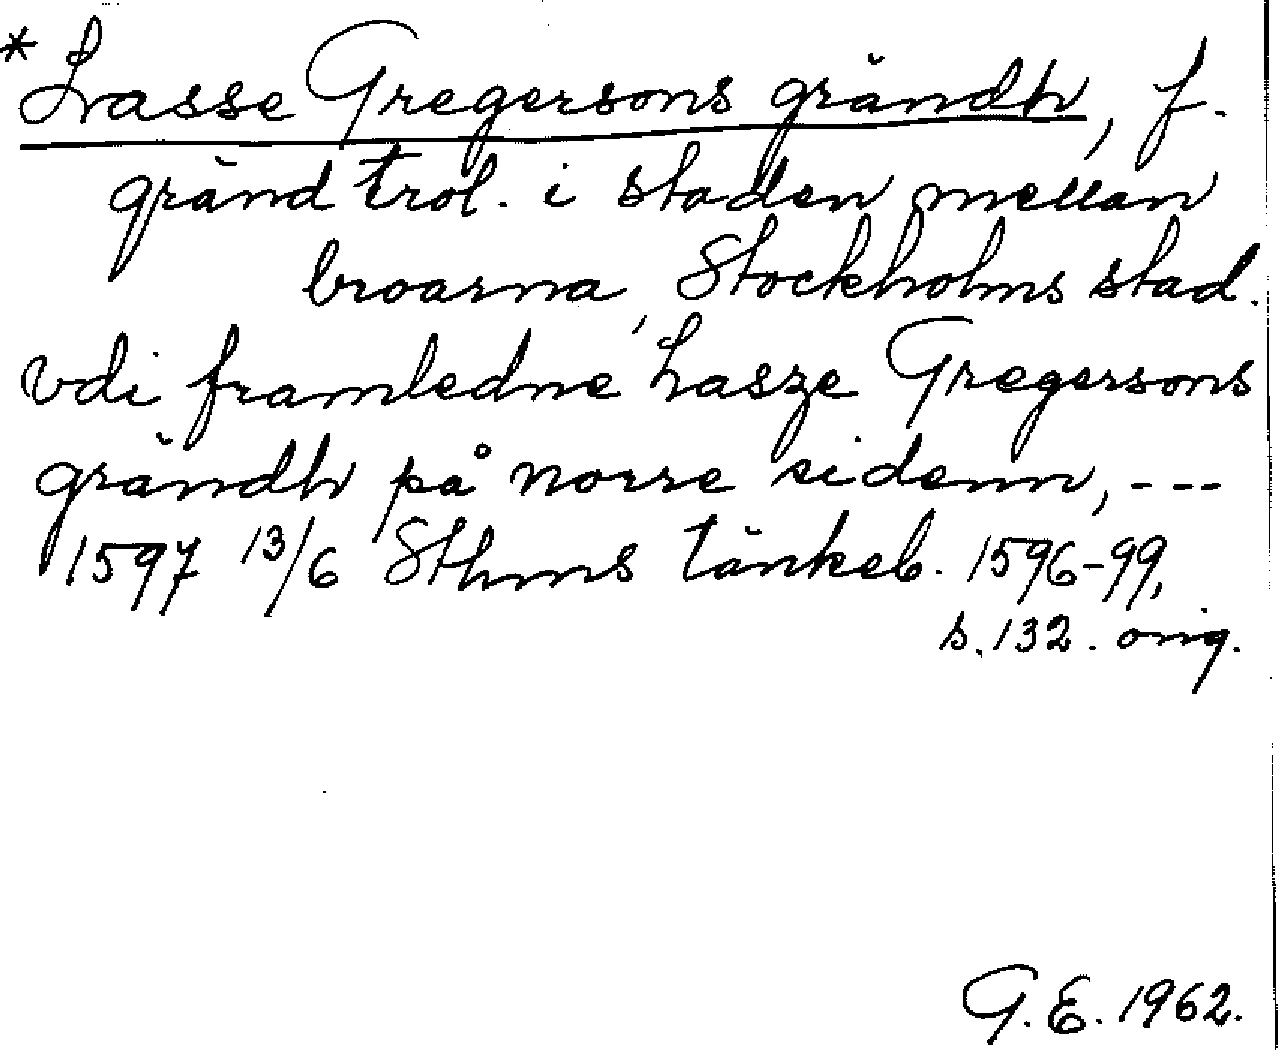 * Lasse Gregersons grändh, f.
gränd trol. i staden mellan
broarna, Stockholms stad.
vdi framledne Lasze Gregersons
grändh på norre sidenn, ---
1597 13/6 Sthms tänkeb. 1596-99,
s. 132. orig.
G. E. 1962.